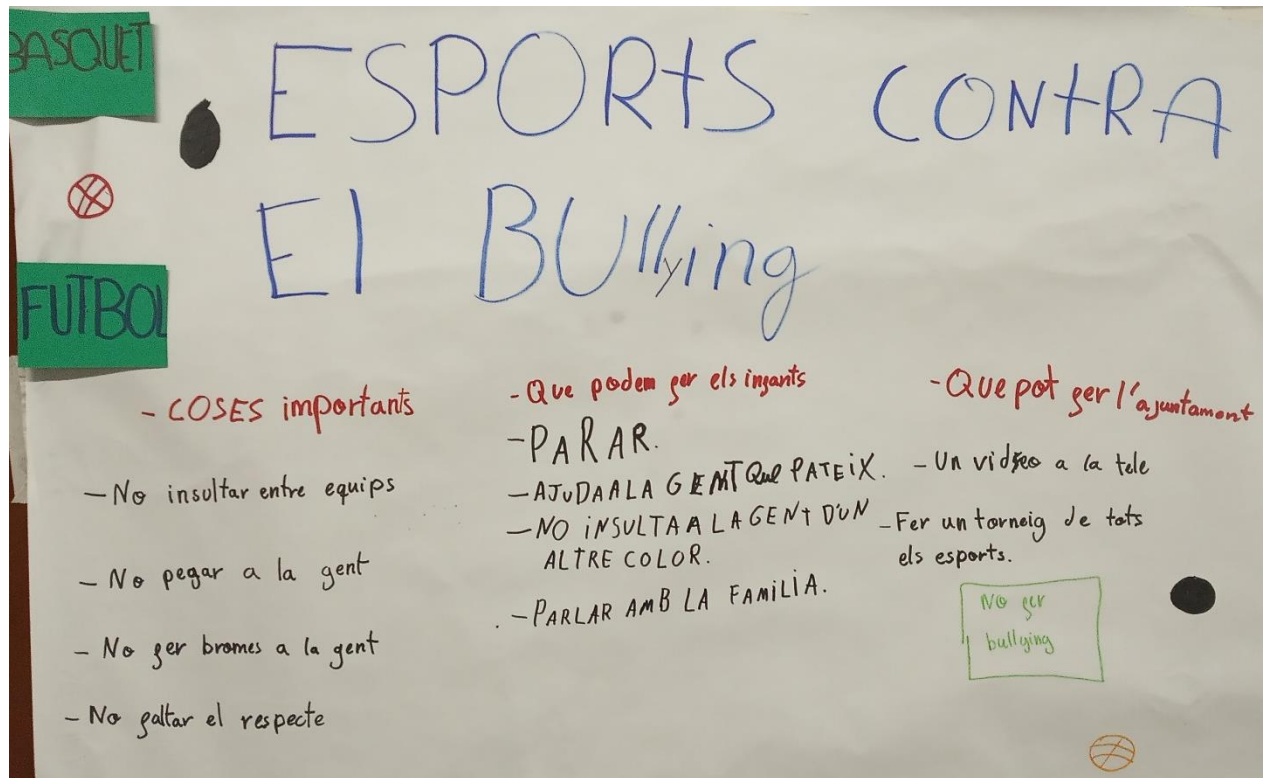 BASQUET
ESPORtS CONtRA
El BUllying
FUTBOL
- COSES importants
- No insultar entre equips
- No pegar a la gent
- No fer bromes a la gent
- No faltar el respecte
- Que podem fer els infants
- PARAR.
- AJUDA A LA GENT QUE PATEIX.
- NO INSULTA A LA GENT D'UN
ALTRE COLOR.
- PARLAR AMB LA FAMÍLIA.
- Que pot fer l'ajuntament
- Un vídeo a la tele
- Fer un torneig de tots
els esports.
No fer
bullying